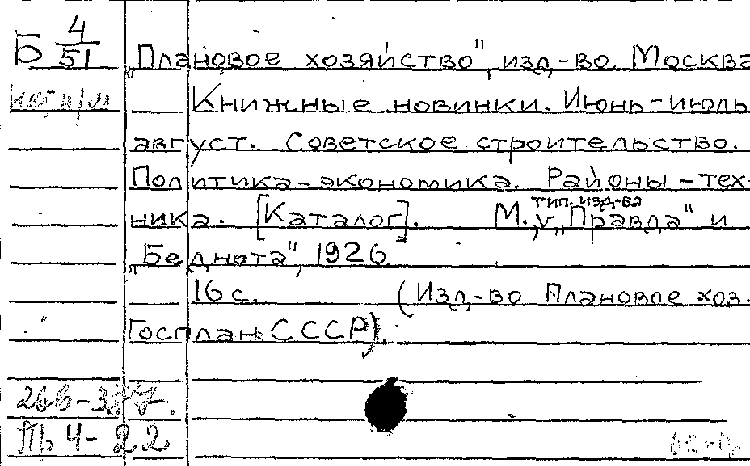 Б 4/51
„Плановое хозяйство", изд-во. Москва
Книжные новинки. Июнь-июль
август. Советское строительство.
Политика-экономика. Районы-тех-
ника. [Каталог]. М., тип. изд-ва „Правда" и
„Беднота", 1926
16 с. (Изд-во Плановое хоз.
Госплан СССР).
266-37
Пр 4-22